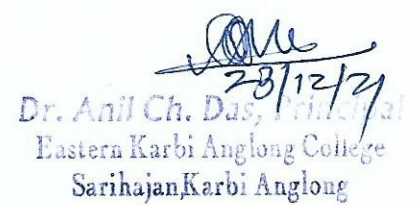 28/12/21
Dr. Anil Ch. Das, Principal
Eastern Karbi Anglong College
Sarihajan,Karbi Anglong